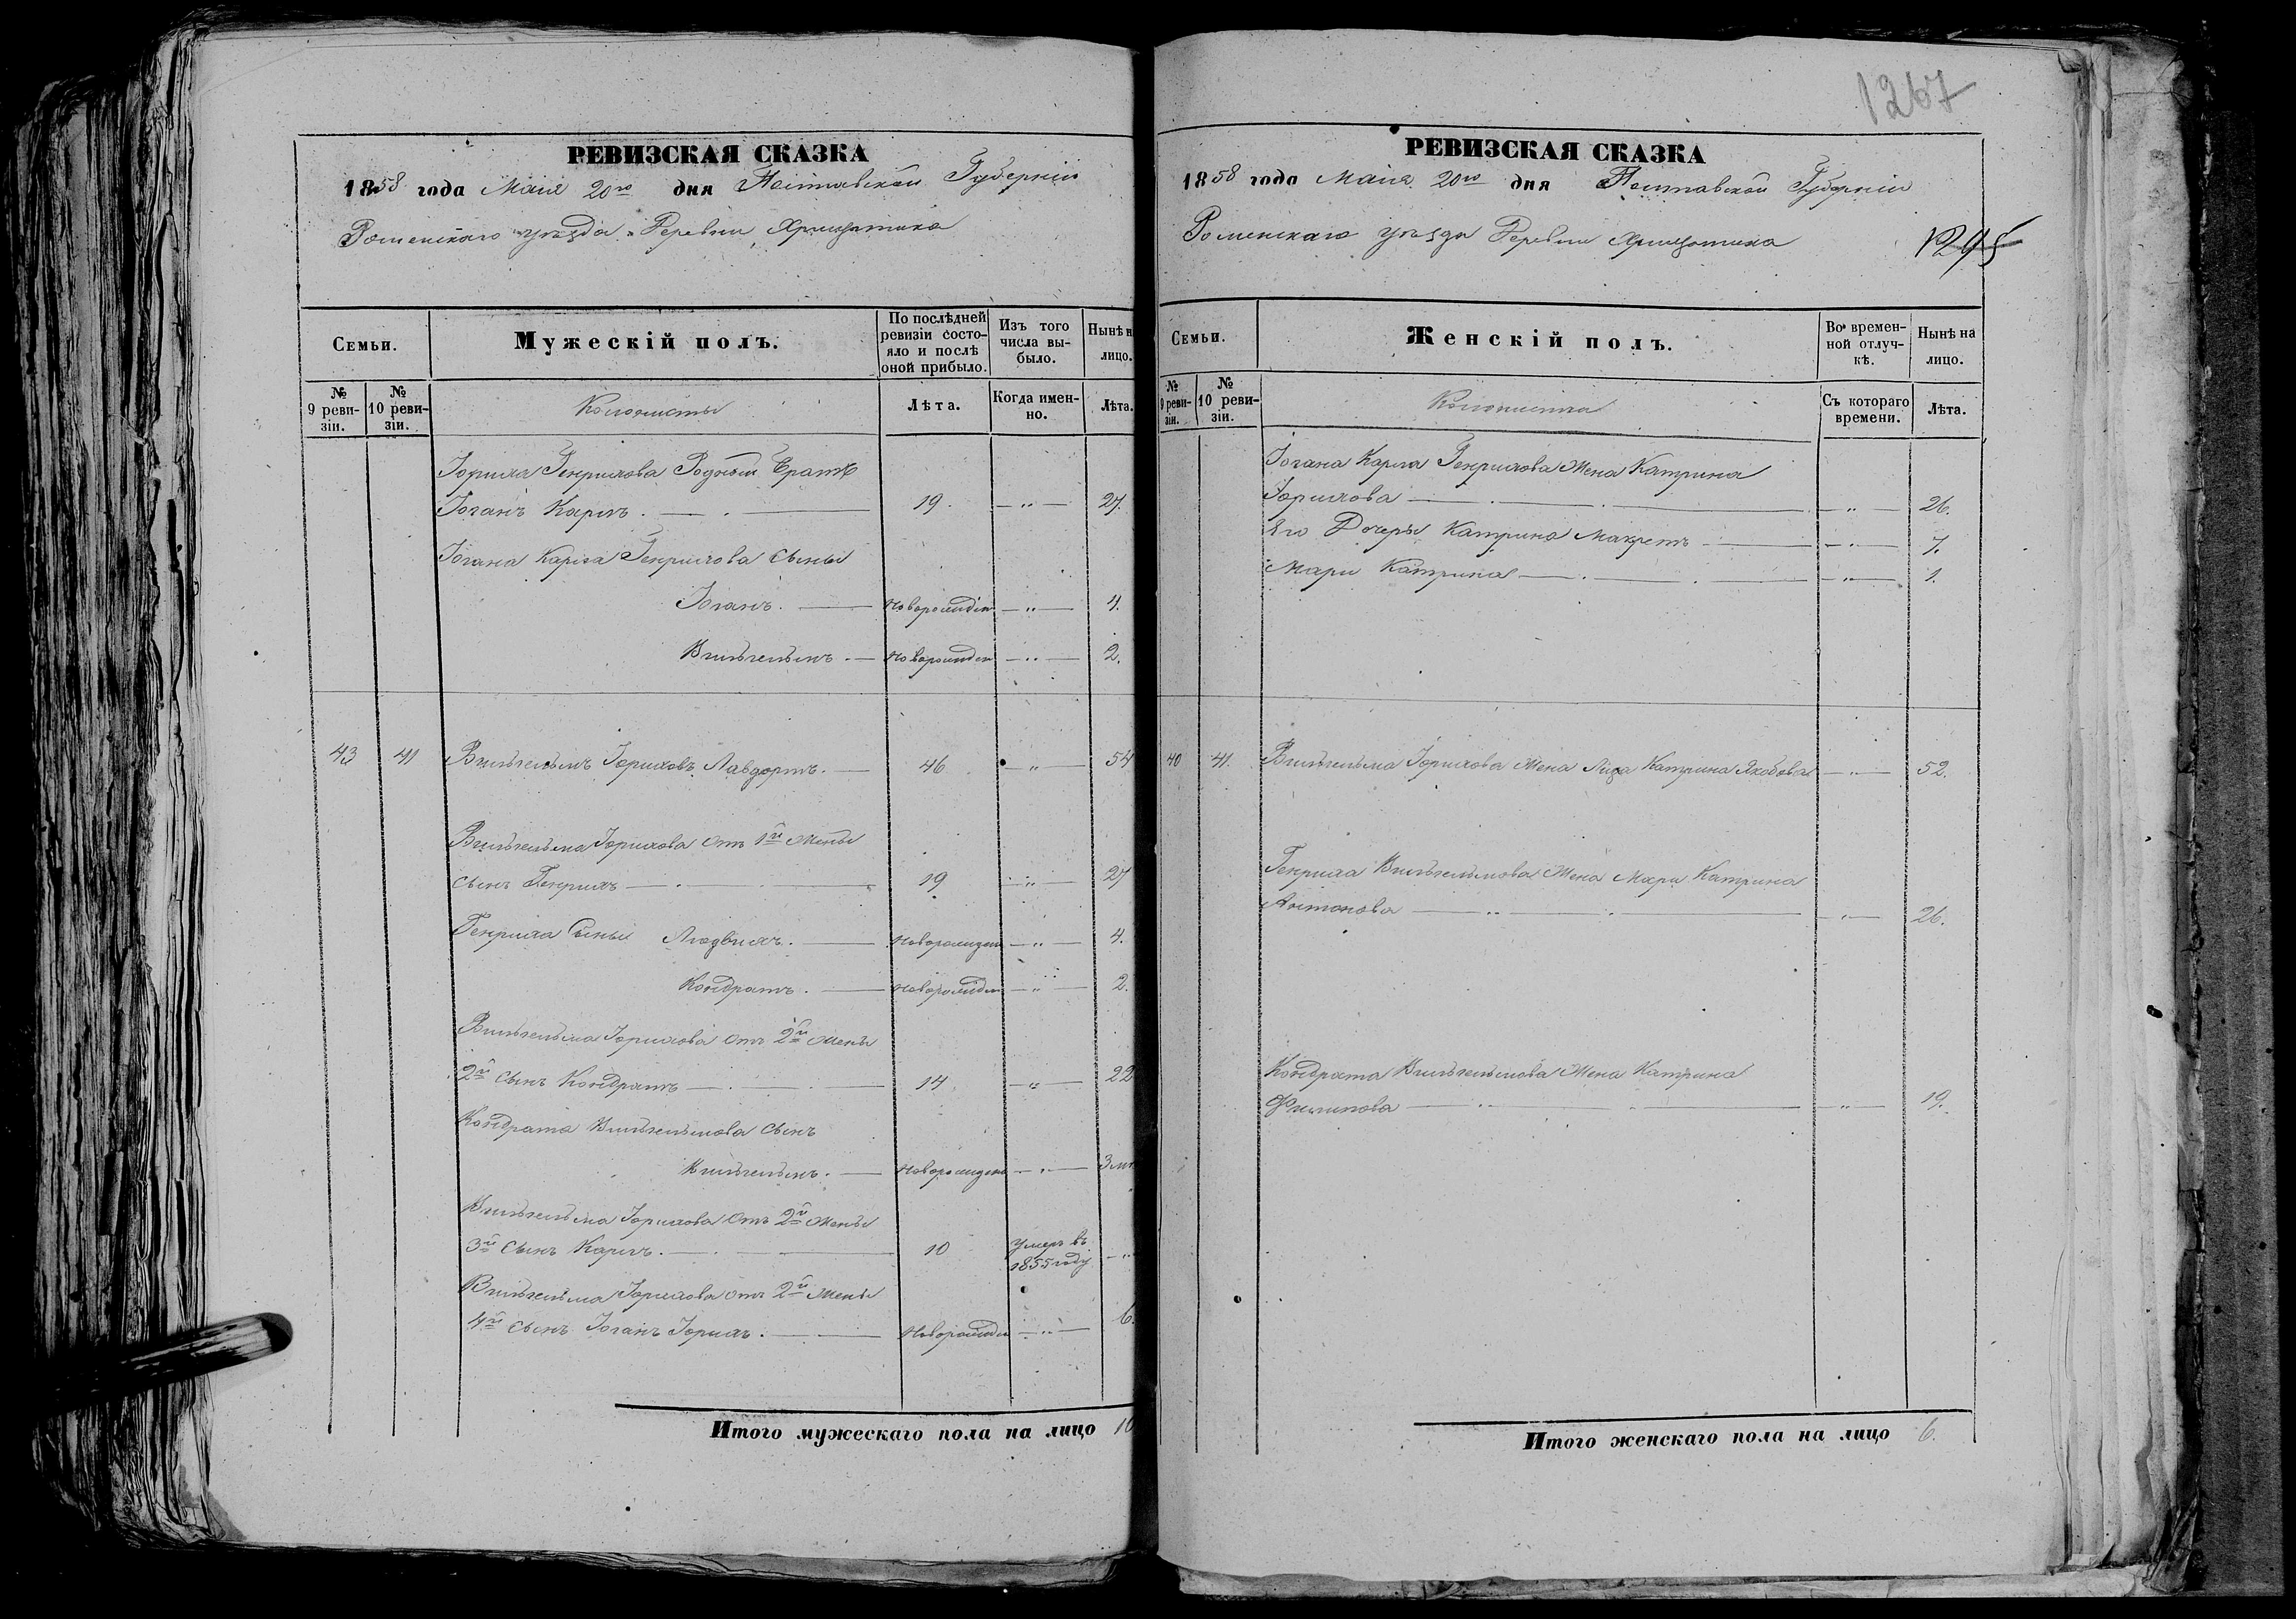 РЕВИЗСКАЯ СКАЗКА
1858 года Маія 20го дня Полтавской Губерніи
Роменскаго уѣзда Деревни Хрищатика
Семьи.
Мужескій полъ.
По послѣдней ревизіи состояло и послѣ оной прибыло.
Изъ того числа выбыло.
Нынѣ н
лицо.
№ 9 ревизіи.
№ 10 ревизіи.
Колонисты
Лѣта.
Когда именно.
Лѣта.
Іориха Генрихова Родный братъ
Іоганъ Карлъ. 19. — „ — 27.
Іогана Карла Генрихова Сыны
Іоганъ. новорожден — „ — 4.
Вильгельмъ. новорожден — „ — 2.
43 41 Вильгельмъ Іориховъ 46 — „ — 54
Вильгельма Іорихова отъ 1й жены
сынъ Генрихъ 19 — „ — 27
Генриха Сыны Людвихъ. новорожден — „ — 4.
Кондратъ. новорожден — „ — 2.
Вильгельма Іорихова отъ 2й жены
2й сынъ Кондратъ 14 — „ — 22
Кондрата Вильгельмова сынъ
Вильгельмъ. новорожден — „ — 3 м
Вильгельма Іорихова отъ 2й жены
3й сынъ Карлъ. 10 умеръ въ 1855 году — „
Вильгельма Іорихова отъ 2й жены
4й сынъ Іоганъ Іорихъ. новорожден — „ — 6.
Итого мужескаго пола на лицо 10
1267
РЕВИЗСКАЯ СКАЗКА
1858 года Маія 20го дня Полтавской Губерніи
Роменскаго уѣзда Деревни Хрищатика
1295
Семьи.
Женскій полъ.
Во временной отлучкѣ.
Нынѣ на лицо.
№ 9 ревизіи.
№ 10 ревизіи.
Колонистка
Съ котораго времени.
Лѣта.
Іогана Карла Генрихова жена Катрина
Іорихова — „ — 26.
Его Дочери Катрина Макретъ — „ — 7.
Мари Катрина — „ — 1.
40 41. Вильгельма Іорихова жена Лиза Катрина Якобова — „ — 52.
Генриха Вильгельмова жена Мари Катрина
Антонова — „ — 26.
Кондрата Вильгельмова жена Катрина
Филипова — „ — 19.
Итого женскаго пола на лицо 6.